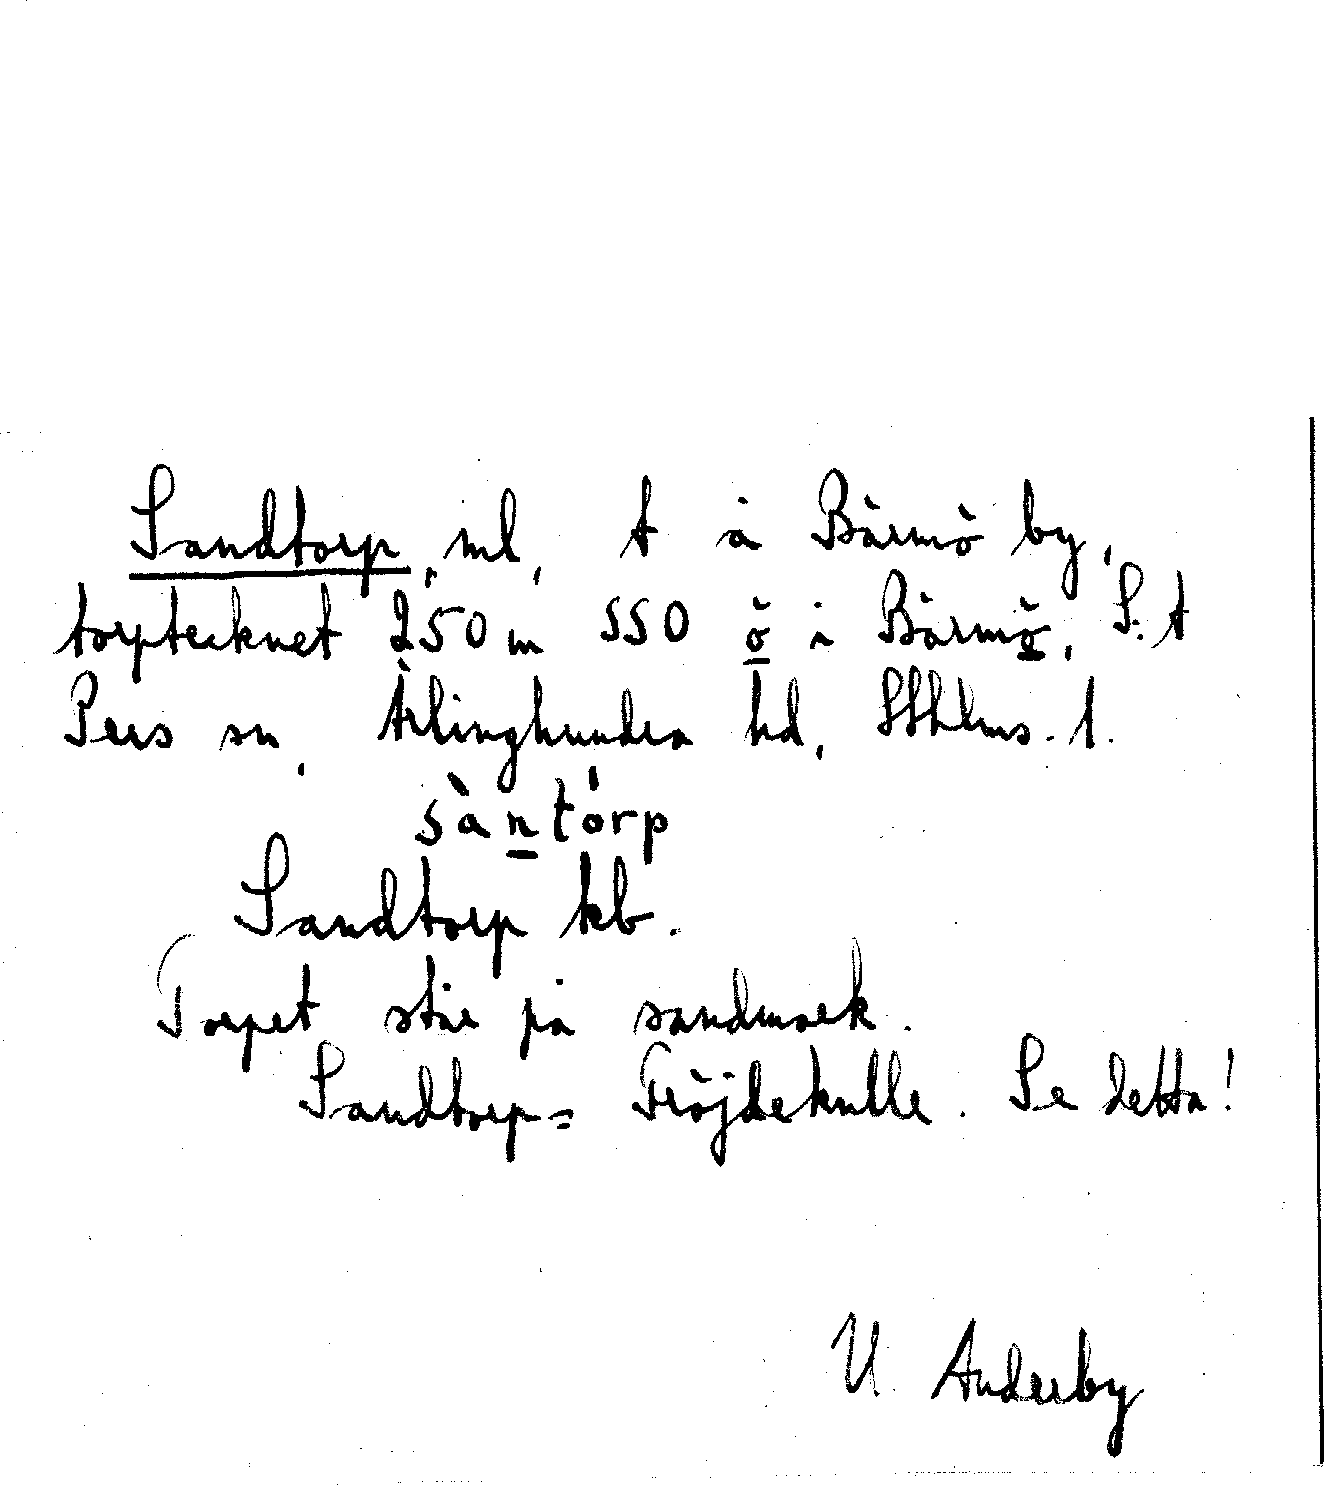 Sandtorp, ml, t å Bärmö by,
torptecknet 250 m SSO ö i Bärmö, S:t
Pers sn, Ärlinghundra hd, Sthlms. l.
sàntórp
Sandtorp kb.
Torpet står på sandmark.
Sandtorp = Fröjdekulle. Se detta!
U Anderby